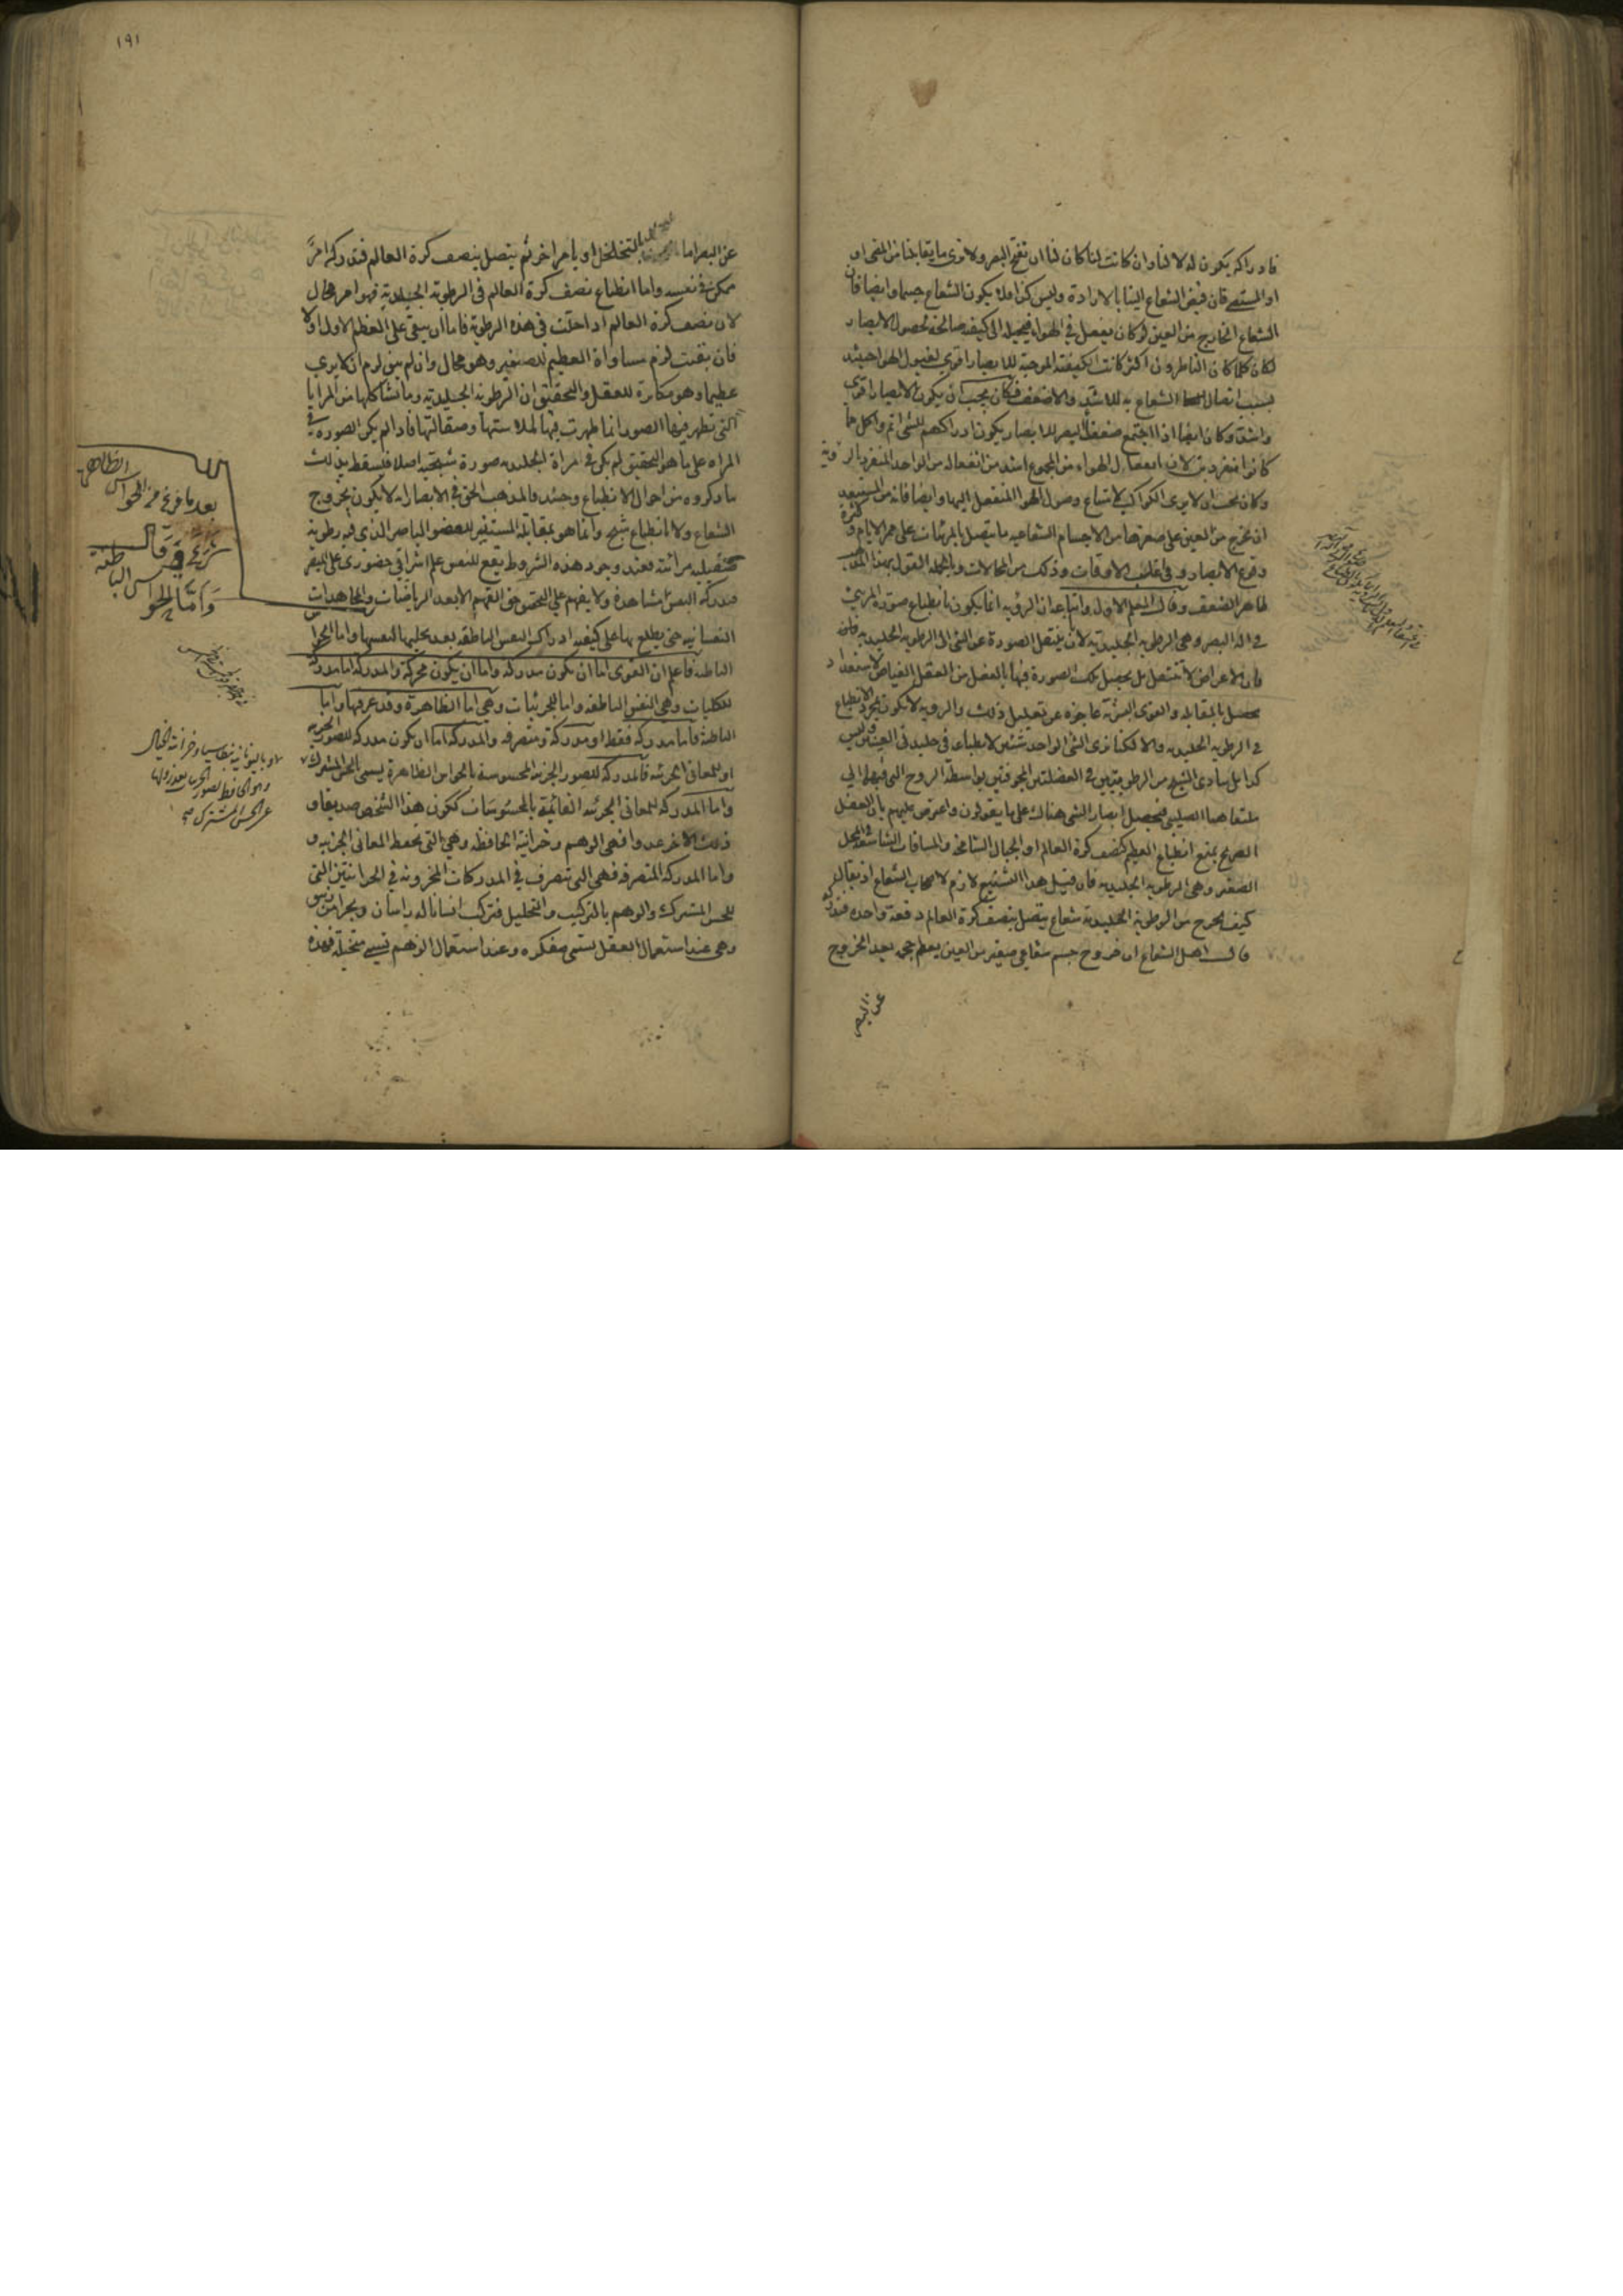 فادراكه يكون له لا لنا وان كانت لنا كان لنا ان نفتح البصر ولا نرى ما يقابلنا من المضئ او
او المستضئ فان قبض الشعاع الينا بالارادة وليس كذا فلا يكون الشعاع جسما وايضا فان
الشعاع الخارج من العين لو كان يفعل في الهواء فيحيله الى كيفية صالحة لحصول الابصار
لكان كلما كان الناظرون اكثر كانت الكيفية الموجبة للابصار اقوى لقبول الهوا حينئذ
بسبب اتصال الشعاع به للاشد والاضعف فكان يجب ان يكون الابصار اقوى
واشد وكان ايضا اذا اجتمع ضعفا البصر للابصار يكون ادراكهم للشئ اتم واكمل مما
كانوا منفردين لان انفعال الهواء من المجموع اشد من انفعاله من الواحد المنفرد بالرؤية
وكان يجب ان لا يرى الكواكب لامتناع وصول الهوا المنفعل اليها وايضا فانه من المستبعد
ان يخرج من العين على صغرها من الاجسام الشعاعيه ما يتصل بالمرئيات على ممر الايام وكثرة
وقوع الابصار وفي اغلب الاوقات وذلك من المحالات وبالجمله القول بهذا المذهب
ظاهر الضعف وقال المعلم الاول واتباعه ان الرؤيه انما يكون بانطباع صورة المرئي
في اله البصر وهى الرطوبه الجليديه لا ان ينتقل الصورة عن الشئ الى الرطوبه الجليديه
فان الاعراض لا تنتقل بل يحصل تلك الصورة فيها بالفعل من العقل الفياض لاستعداد
يحصل بالمقابله والقوى البشرية عاجزه عن تعليل ذلك والرويه لا يكون بمجرد الانطباع
في الرطوبه الجليديه والا لكنا نرى الشئ الواحد شئين لانطباعه في جليدتى العينين وليس
كذا بل يتادى الشبح من الرطوبتين في العصبتين المجوفتين بواسطة الروح التى فيهما الي
ملتقاهما الصليبى فيحصل ابصار الشى هناك على ما يقولون واعترض عليهم بان العقل
الصريح يمنع انطباع العظيم كنصف كرة العالم او الجبال الشامخه والمسافات الشاسعة في المحل
الصغير وهى الرطوبه الجليديه فان قيل هذا التشنيع لازم لاصحاب الشعاع اذ يقال
كيف يخرج من الرطوبة الجليدية شعاع يتصل بنصف كرة العالم دفعة واحده
قال اهل الشعاع ان خروج جسم شعاعي صغير من العين يعظم حجمه بعد الخروج
عن البصر
١٩١
عن البصر اما بالتخلخل او بامر اخر ثم يتصل بنصف كرة العالم فذلك امر
ممكن في نفسه واما انطباع نصف كرة العالم في الرطوبة الجليدية فهو امر محال
لان نصف كرة العالم اذا حلت في هذه الرطوبة فاما ان يبقى على العظم الاول او لا
فان بقيت لزم مساواة العظيم للصغير وهو محال وان لم يبق لزم ان لا يرى
عظيما وهو مكابرة للعقل والتحقيق ان الرطوبة الجليدية وما شاكلها من المرايا
التى تظهر فيها الصور انما ظهرت فيها لملاستها وصقالتها فاذا لم يكن الصورة في
المراه على ما هو التحقيق لم يكن في مراة الجليديه صورة شبحيه اصلا فسقط بذلك
ما ذكروه من احوال الانطباع وحينئذ فالمذهب الحق في الابصار انه لا يكون بخروج
الشعاع ولا بانطباع شبح وانما هو بمقابلة المستنير للعضو الباصر الذي فيه رطوبة
صقيلة مرآتية فعند وجود هذه الشروط يقع للنفس علم اشراقي حضوري على المبصر
فتدركه النفس مشاهدة ولا يفهم علي التحقيق هذا الفهم الا بعد الرياضيات والمجاهدات
النفسانيه حتى يطلع بها على كيفية ادراك النفس الناطقه بعد تجليها لنفسها واما الحواس
الباطنة فاعلم ان القوى اما ان يكون مدركة واما ان يكون محركة والمدركة اما مدركة
للكليات وهي النفس الناطقة واما للجزئيات وهي اما الظاهرة وقد عرفتها واما
الباطنة فاما مدركة فقط او مدركة ومتصرفه والمدركة اما ان يكون مدركة للصور الجزيه
او للمعاني الجزئيه فالمدركة للصور الجزئية المحسوسة بالحواس الظاهرة يسمى بالحس المشترك
واما المدركة للمعاني الجزئيه القائمة بالمحسوسات ككون هذا الشخص صديقا و
ذلك الاخر عدوا فهى الوهم وخزانته الحافظه وهي التى يحفظ المعاني الجزئيه و
واما المدركه المتصرفه فهى التي تتصرف في المدركات المخزونة في الخزانتين التى
للحس المشترك والوهم بالتركيب والتحليل فتركب انسانا له راسان وبحرا من زيبق
وهي عند استعمال العقل يسمى مفكره وعند استعمال الوهم تسمى متخيلة فهذه
بعد ما فرغ من الحواس الظاهرة
شرع في
الباطنة
قال
واما الحواس
وباليونانية بنطاسيا وخزانته الخيال
وهو الحافظ لصور الجزئيات بعد زوالها
عن الحس المشترك